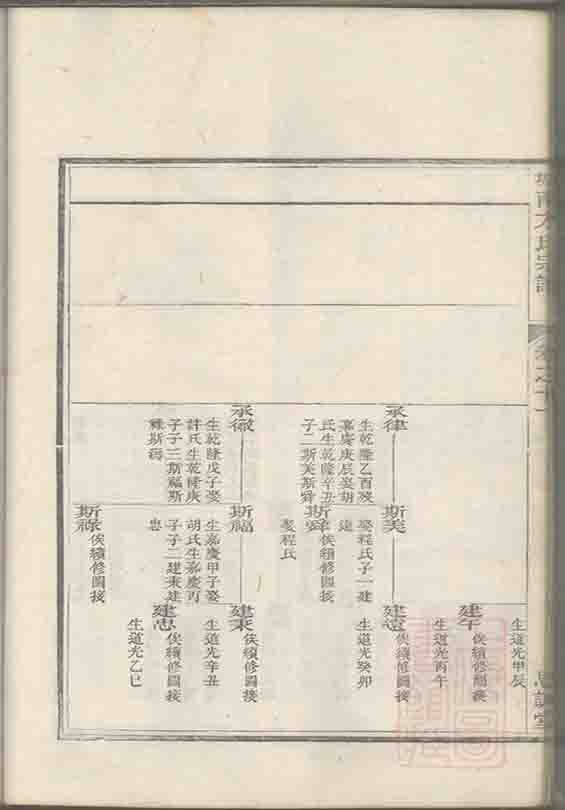 南方氏宗譜
生道光甲辰
建午
俟續修圖接
生道光丙午
承律
生乾隆乙酉歿
嘉慶庚辰娶胡
氏生乾隆辛丑
子二斯美斯舜
斯美
娶程氏子一建
遠
建遠
俟續修圖接
生道光癸卯
斯舜
俟續修圖接
娶程氏
承徽
生乾隆戊子娶
許氏生乾隆庚
子子三斯福斯
祿斯海
斯福
生嘉慶甲子娶
胡氏生嘉慶丙
子子二建秉建
忠
建秉
俟續修圖接
生道光辛丑
建忠
俟續修圖接
生道光乙巳
斯祿
俟續修圖接